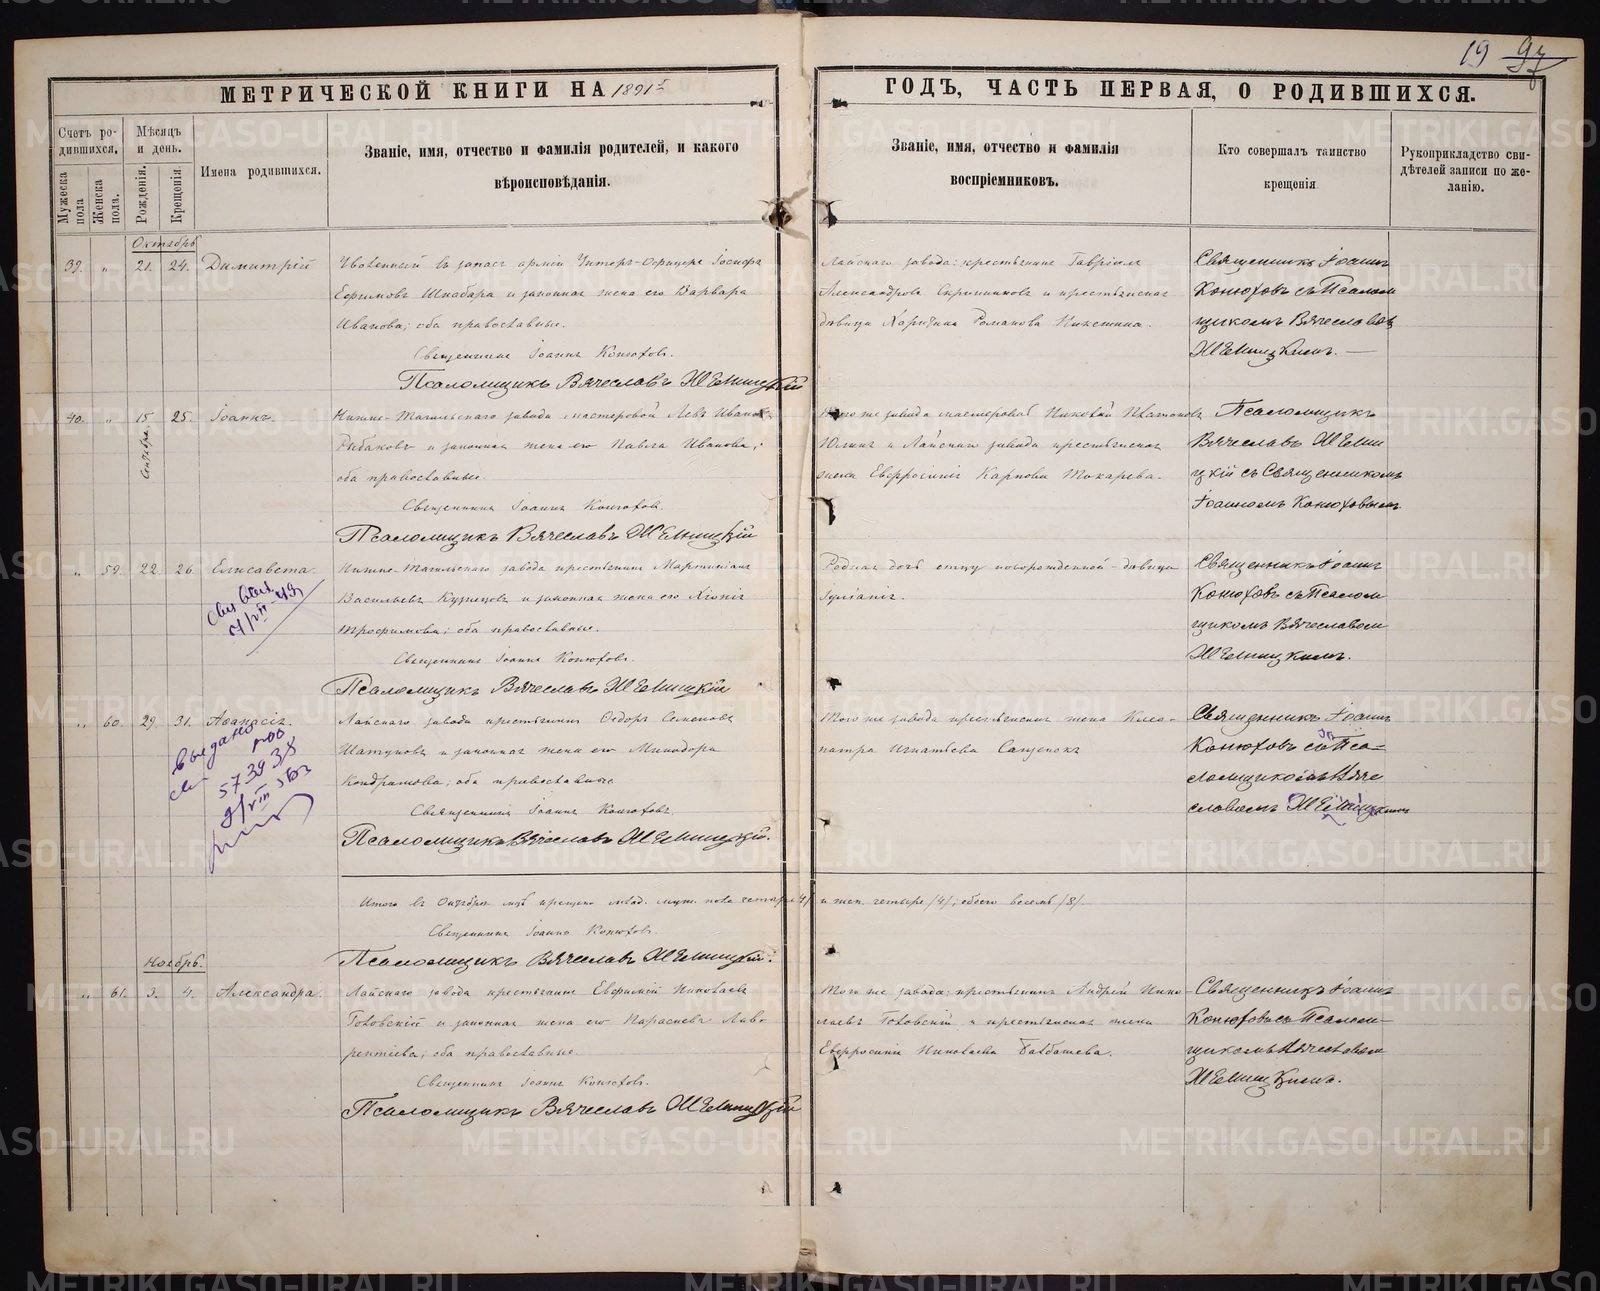 19 97
МЕТРИЧЕСКОЙ КНИГИ НА 1891й
ГОДЪ, ЧАСТЬ ПЕРВАЯ, О РОДИВШИХСЯ.
Счетъ ро-
дившихся.
Мужеска
пола
Женска
пола.
Мѣсяцъ
и день.
Рожденія.
Крещенія.
Имена родившихся.
Званіе, имя, отчество и фамилія родителей, и какого
вѣроисповѣданія.
Званіе, имя, отчество и фамилія
воспріемниковъ.
Кто совершалъ таинство
крещенія
Рукоприкладство сви-
дѣтелей записи по же-
ланію.
Октябрь
39. " 21. 24. Димитрій
Уволенный въ запасъ арміи Унтеръ-Офицеръ Іосифъ
Ефимовъ Шкабара и законная жена его Варвара
Иванова; оба православные.
Священникъ Іоаннъ Конюховъ.
Псаломщикъ Вячеславъ
Лайскаго завода: крестьянинъ Гавріилъ
Александровъ и крестьянская
дѣвица Харитина Романова Никитина.
Священникъ Іоаннъ
Конюховъ съ Псалом
щикомъ Вячеславом
40. " 15 25. Іоаннъ.
Сентября.
Нижне-Тагильскаго завода мастеровой Левъ Иванов
Рыбаковъ и законная жена его Павла Иванова;
оба православные.
Священникъ Іоаннъ Конюховъ.
Псаломщикъ Вячеславъ
Того же завода мастеровой Николай Платоновъ
и Лайскаго завода крестьянская
жена Евфросинія Карпова Токарева.
Псаломщикъ
Вячеславъ
цкій съ Священникомъ
Іоанномъ Конюховымъ.
" 59. 22. 26. Елисавета.
Нижне-Тагильскаго завода крестьянинъ Мартиніанъ
Васильевъ Кузнецовъ и законная жена его Хіонія
Трофимова; оба православные.
Священникъ Іоаннъ Конюховъ.
Псаломщикъ Вячеславъ
Родная дочь отцу новорожденной - дѣвица
Іуліанія.
Священникъ Іоаннъ
Конюховъ съ Псалом
щикомъ Вячеславом
" 60. 29. 31. Аѳанасія.
выдано
573938
Лайскаго завода крестьянинъ Ѳедоръ Семеновъ
Шатуновъ и законная жена его Минодора
Кондратова; оба православные
Священникъ Іоаннъ Конюховъ.
Псаломщикъ Вячеславъ
Того же завода крестьянская жена Клео-
патра Игнатьева
Священникъ Іоаннъ
Конюховъ съ Пса-
ломщикомъ Вяче
славомъ
Итого въ Октябрѣ м-цѣ крещено млад. муж. пола четыре /4/ и жен. четыре /4/; обоего восемь /8/
Священникъ Іоаннъ Конюховъ.
Псаломщикъ Вячеславъ
Ноябрь.
" 61. 3. 4. Александра.
Лайскаго завода крестьянинъ Евфимій Николаевъ
Головскій и законная жена его Параскева Лав-
рентіева; оба православные.
Священникъ Іоаннъ Конюховъ.
Псаломщикъ Вячеславъ
Того же завода: крестьянинъ Андрей Нико-
лаевъ Головскій и крестьянская жена
Евфросинія Николаева Балбашева.
Священникъ Іоаннъ
Конюховъ съ Псалом-
щикомъ Вячеславом
METRIKI.GASO-URAL.RU